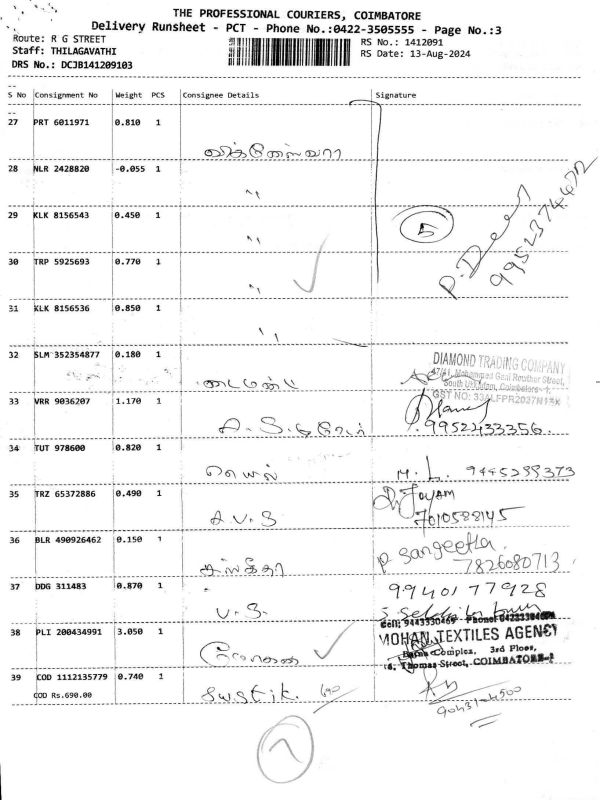 THE PROFESSIONAL COURIERS, COIMBATORE
Delivery Runsheet - PCT - Phone No.:0422-3505555 - Page No.:3
Route: R G STREET
RS No.: 1412091
Staff: THILAGAVATHI
RS Date: 13-Aug-2024
DRS No.: DCJB141209103
S No Consignment No Weight PCS Consignee Details Signature
27 PRT 6011971 0.810 1
விக்னேஸ்வரா
28 NLR 2428820 -0.055 1
"
29 KLK 8156543 0.450 1
"
5
P. Deer
9952374472
30 TRP 5925693 0.770 1
"
31 KLK 8156536 0.850 1
"
32 SLM 352354877 0.180 1
டைமண்ட்
DIAMOND TRADING COMPANY
47/41, Mohammed Gani Rowther Street,
South Ukkadam, Coimbatore-1
33 VRR 9036207 1.170 1
9952433356
34 TUT 978600 0.820 1
M. L. 9445299373
35 TRZ 65372886 0.490 1
Jayam
7010588145
36 BLR 490926462 0.150 1
சங்கீதா
P Sangeetha
7826080713
37 DDG 311483 0.870 1
9940177928
38 PLI 200434991 3.050 1
Cell: 9443330469
MOHAN TEXTILES AGENCY
Complex, 3rd Floor,
Thomas Street, COIMBATORE-1
39 COD 1112135779 0.740 1
Swastik. 690
COD Rs.690.00
7